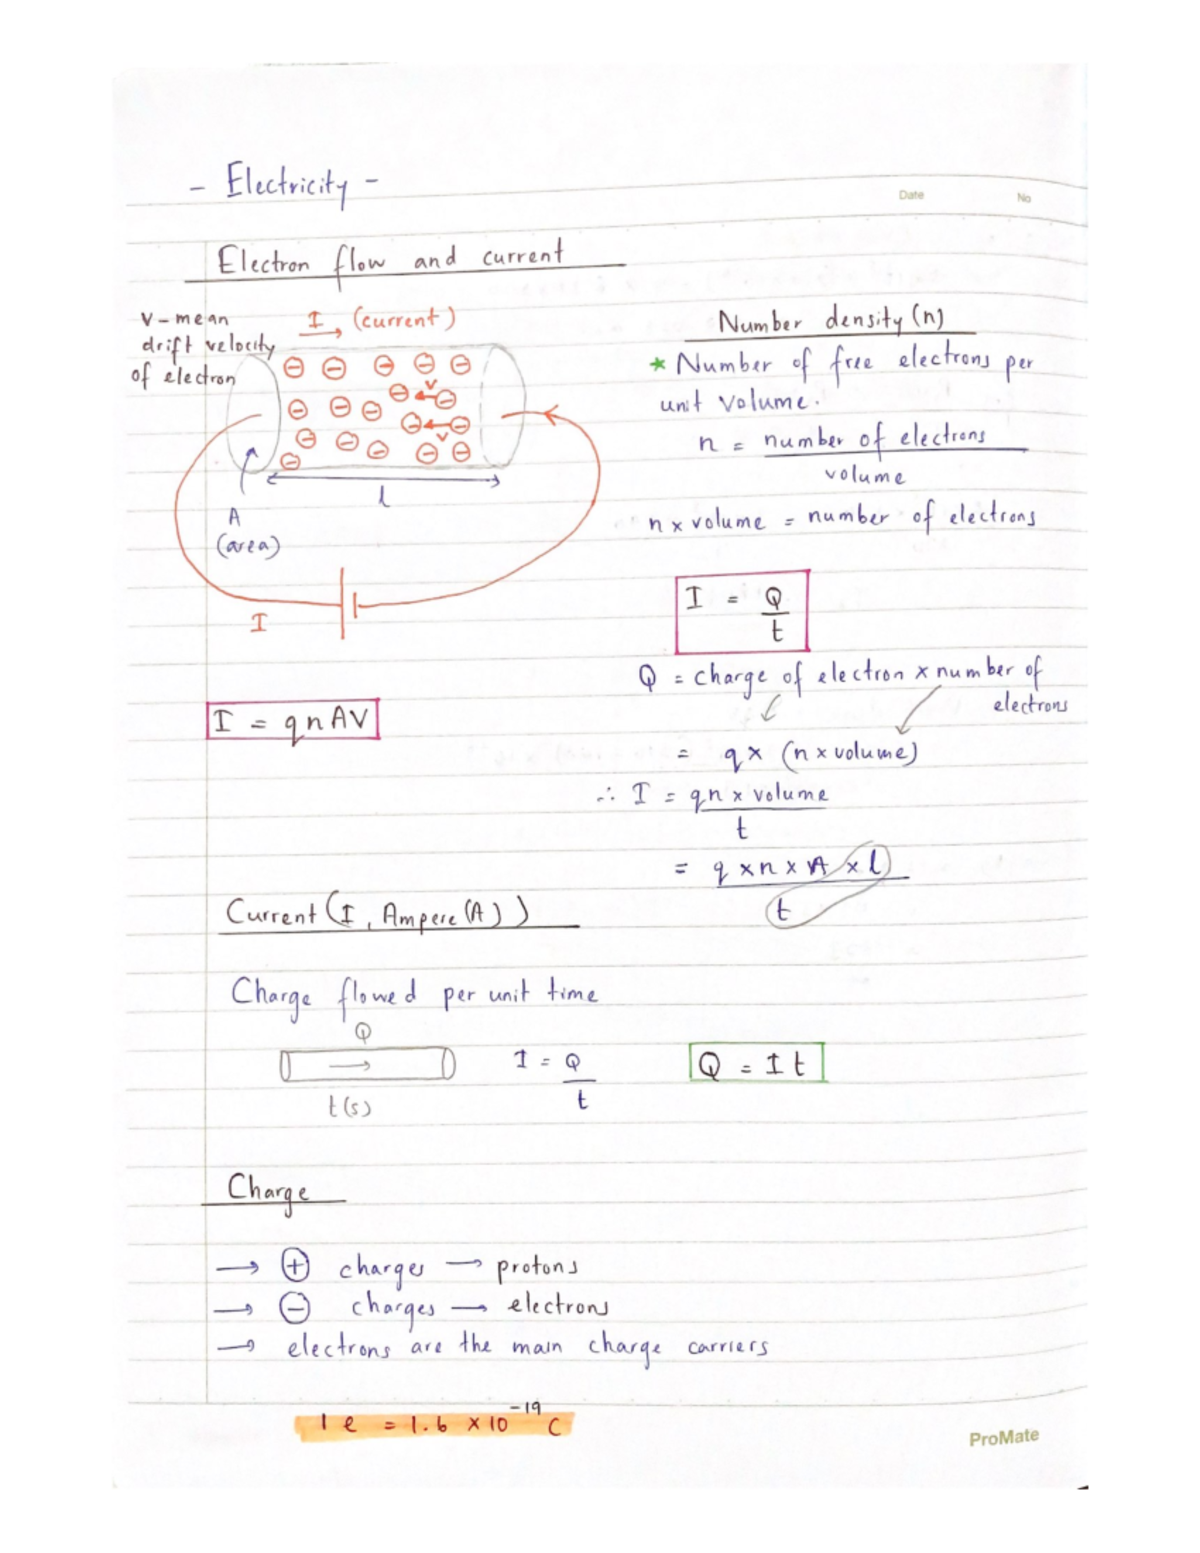 - Electricity -
Date No
Electron flow and current
V-mean
drift velocity
of electron
I (current)
v
v
l
A
(area)
I
Number density (n)
* Number of free electrons per
unit volume.
n = number of electrons
volume
n x volume = number of electrons
I = Q
t
Q = charge of electron x number of
electrons
= q x (n x volume)
∴ I = qn x volume
t
= q x n x A x l
t
I = qnAV
Current (I, Ampere (A))
Charge flowed per unit time
Q
t(s)
I = Q
t
Q = It
Charge
→ + charges → protons
→ - charges → electrons
→ electrons are the main charge carriers
1 e = 1.6 x 10⁻¹⁹ C
ProMate